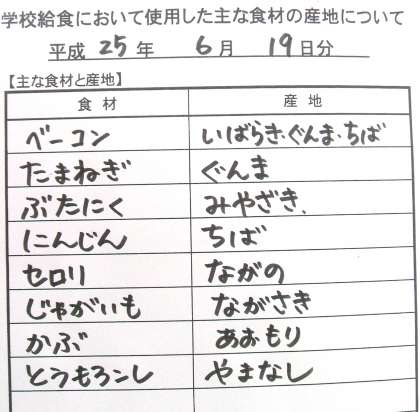 学校給食において使用した主な食材の産地について
平成 25 年 6 月 19 日分
【主な食材と産地】
食材 産地
ベーコン いばらき・ぐんま・ちば
たまねぎ ぐんま
ぶたにく みやざき、
にんじん ちば
セロリ ながの
じゃがいも ながさき
かぶ あおもり
とうもろコンし やまなし